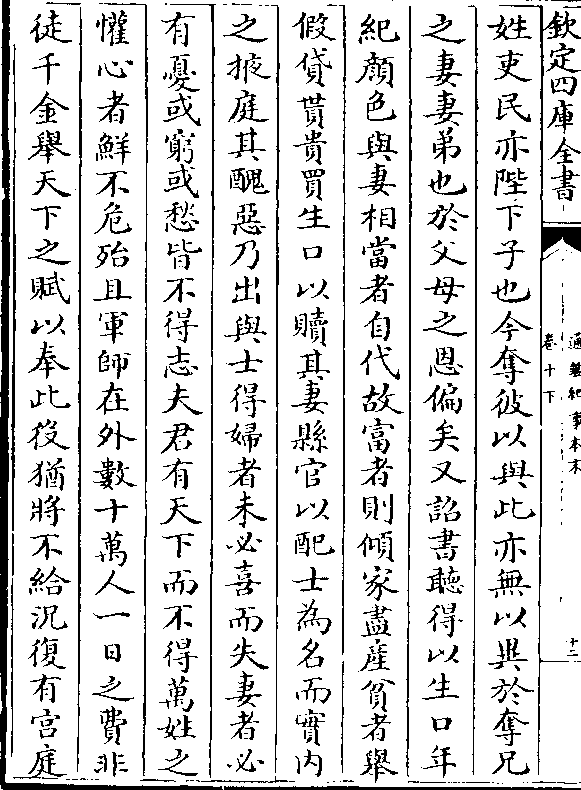 欽定四庫全書
通鑑紀事本末
卷十下
十二
姓吏民亦陛下子也今奪彼以與此亦無以異於奪兄
之妻妻弟也於父母之恩偏矣又詔書聽得以生口年
紀顔色與妻相當者自代故富者則傾家盡産貧者舉
假貸貰貴買生口以贖其妻縣官以配士為名而實内
之掖庭其醜惡乃出與士得婦者未必喜而失妻者必
有憂或窮或愁皆不得志夫君有天下而不得萬姓之
懽心者鮮不危殆且軍師在外數十萬人一日之費非
徒千金舉天下之賦以奉此役猶將不給況復有宫庭